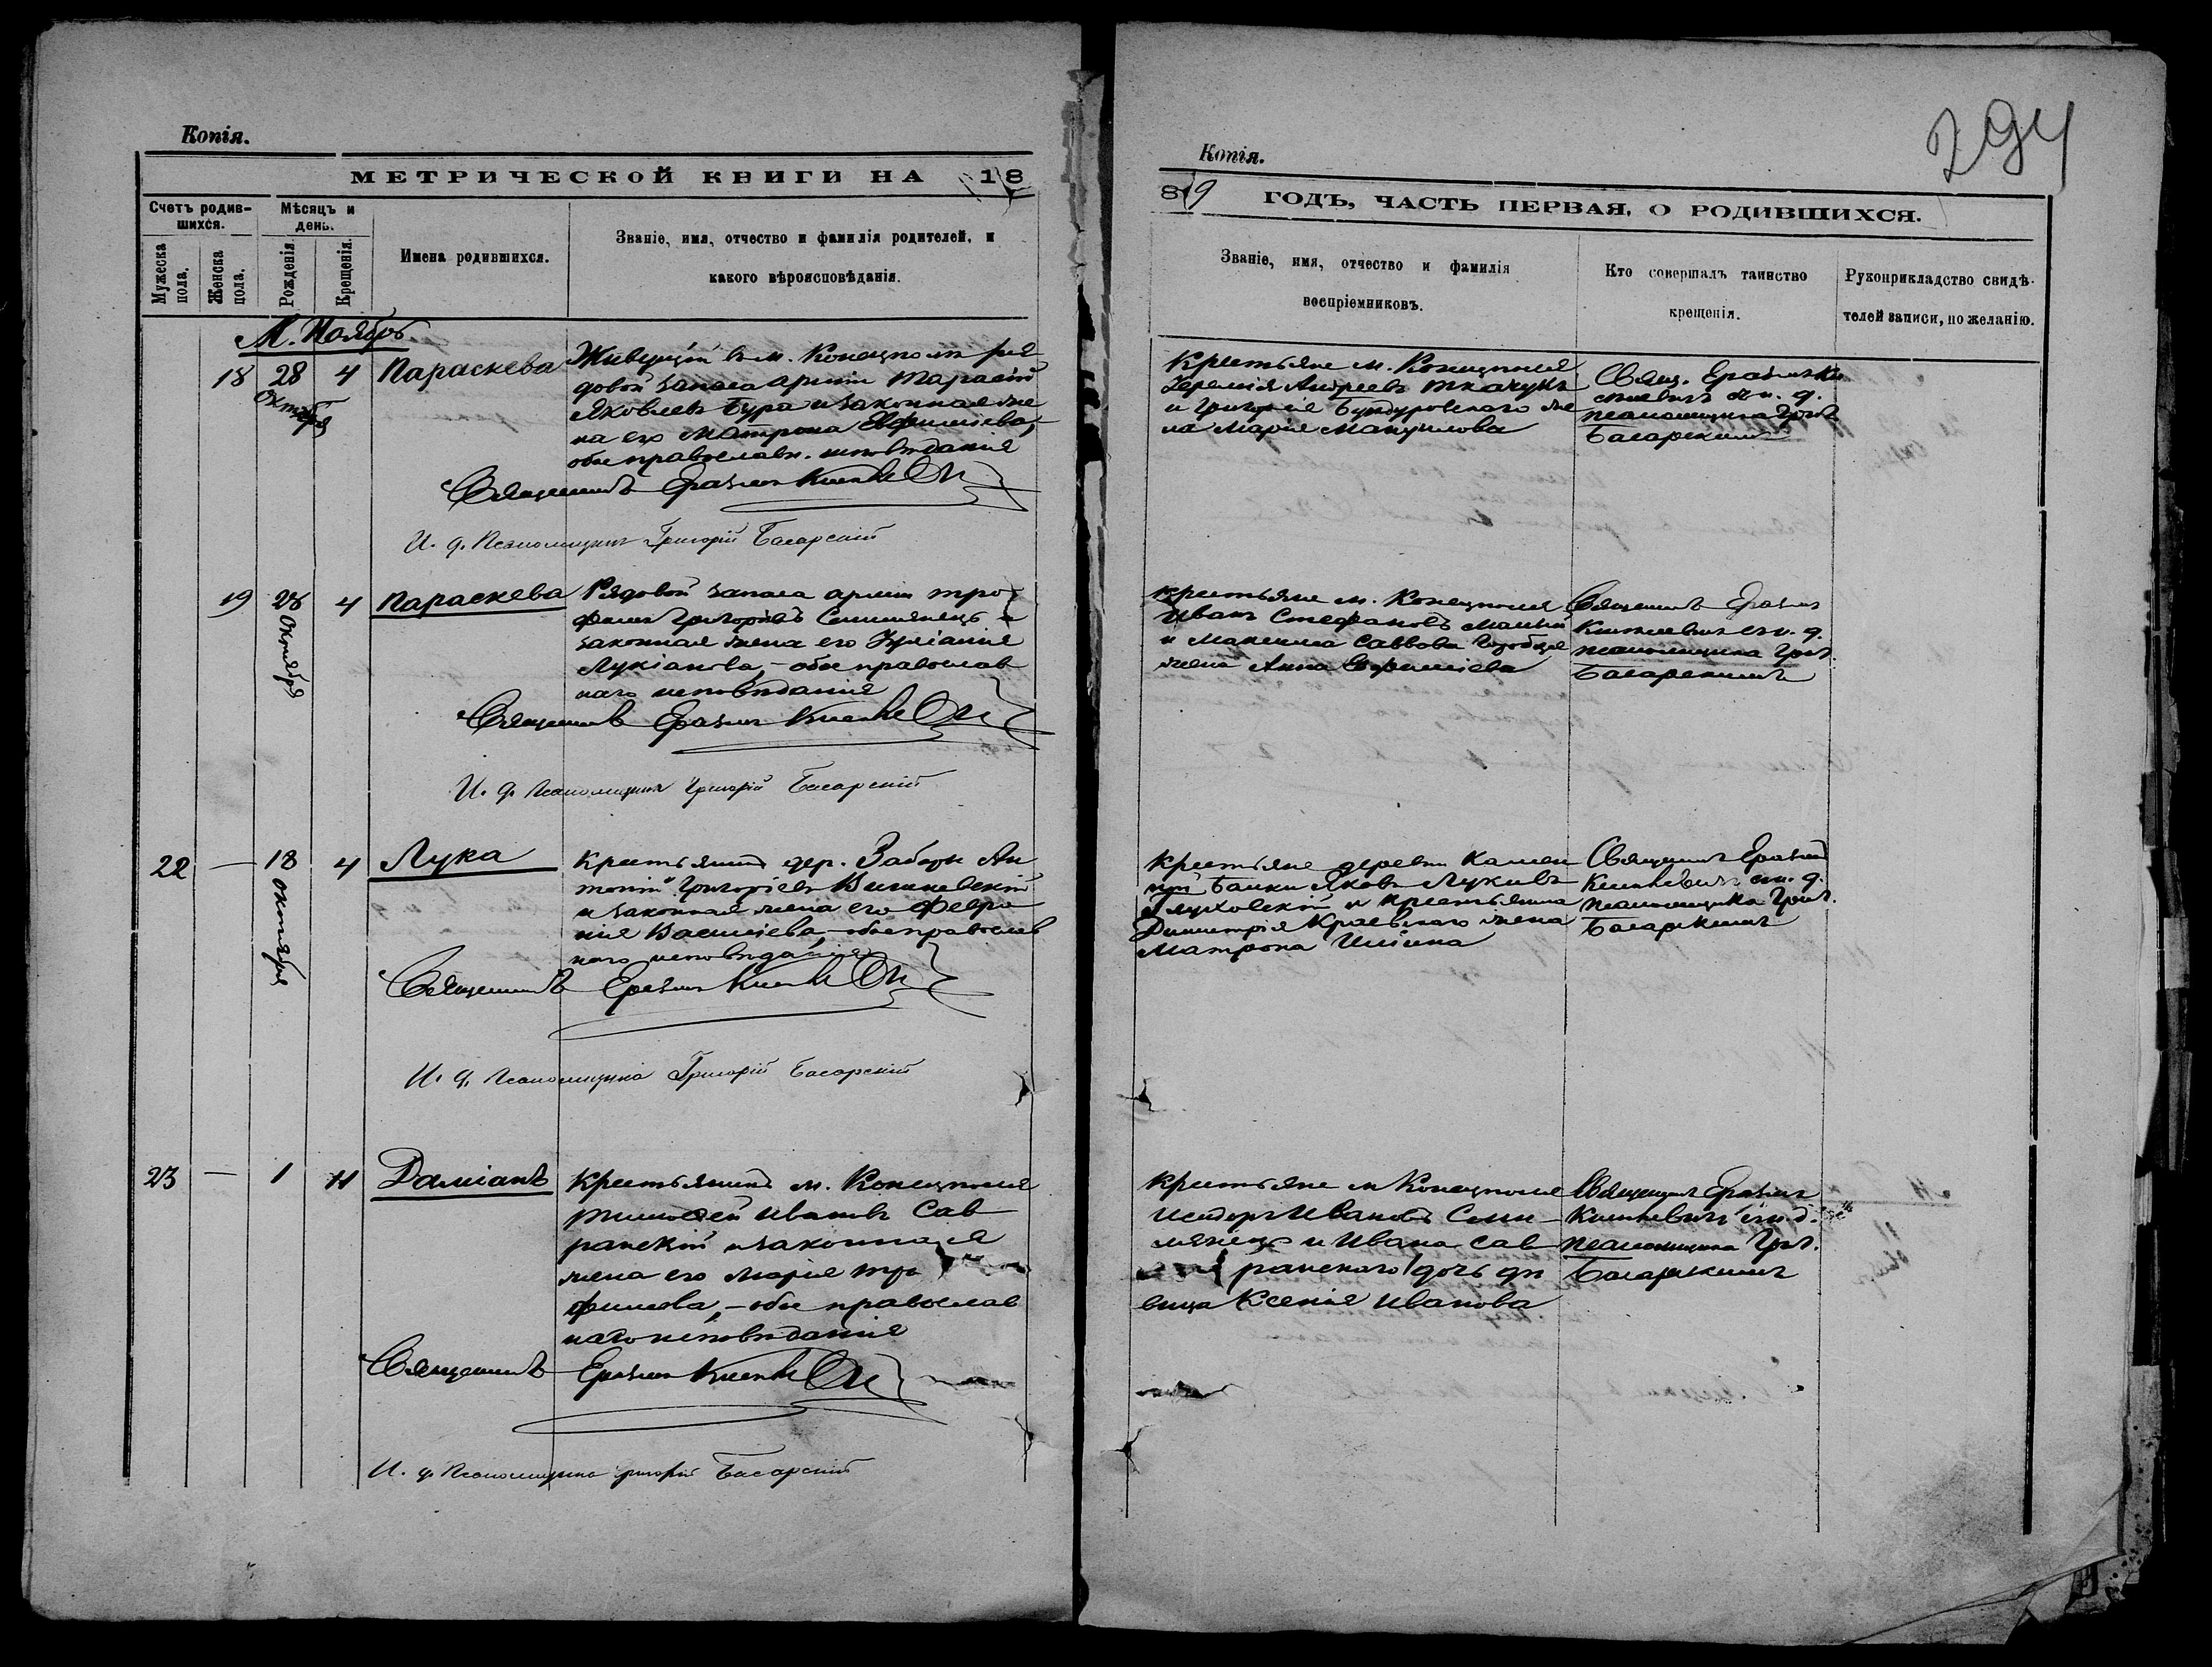 Копія.
МЕТРИЧЕСКОЙ КНИГИ НА 18
Счетъ родив-
шихся.
Мѣсяцъ и
день.
Мужеска
пола.
Женска
пола.
Рожденія.
Крещенія.
Имена родившихся.
Званіе, имя, отчество и фамилія родителей, и
какого вѣроисповѣданія.
М. Ноябрь
18 28 4 Параскева Живущій в м. Конецполѣ ря-
Октября
довой запаса арміи Тарасій
Яковлевъ Бура и законная же-
на его Матрона Евфиміева,
обое православн. исповѣданія
Священникъ Еразмъ
И. д. Псаломщика Григорій Басарскій
19 28 4 Параскева Рядовой запаса арміи Тро-
Октября
фимъ Григорьевъ и
законная жена его Іуліанія
Лукіанова, – обое православ
наго исповѣданія
Священникъ Еразмъ
И. д. Псаломщика Григорій Басарскій
22 — 18 4 Лука Крестьянинъ дер. Ан
Октября
тоній Григоріевъ Вишневскій
и законная жена его Февро
нія Василіева, – обое православ
наго исповѣданія
Священникъ Еразмъ
И. д. Псаломщика Григорій Басарскій
23 — 1 11 Даміанъ Крестьянинъ м. Конецполя
Тимофей Ивановъ Сав
ранскій и законная
жена его Марія Тро
фимова, – обое православ
наго исповѣданія
Священникъ Еразмъ
И. д. Псаломщика Григорій Басарскій
294
Копія.
89 ГОДЪ, ЧАСТЬ ПЕРВАЯ, О РОДИВШИХСЯ.
Званіе, имя, отчество и фамилія
воспріемниковъ.
Кто совершалъ таинство
крещенія.
Рукоприкладство свидѣ-
телей записи, по желанію.
Крестьяне м. Конецполя
Іеремія Андреевъ Ткачукъ
и Григорія Бундуровскаго же
на Марія Мануилова
Свящ. Еразмъ
съ и. д.
псаломщика Григ.
Басарскимъ
Крестьяне м. Конецполя
Иванъ Стефановъ
и Максима Саввова
жена Анна Евфиміева
Священникъ Еразмъ
съ и. д.
псаломщика Григ.
Басарскимъ
Крестьяне деревни Камен
ной Балки Яковъ Лукинъ
Глуховскій и крестьянина
Димитрія Краевскаго жена
Матрона
Священникъ Еразмъ
съ и. д.
псаломщика Григ.
Басарскимъ
Крестьяне м Конецполя
Исидоръ Ивановъ
и Ивана Сав
ранского дочь дѣ
вица Ксенія Иванова
Священникъ Еразмъ
съ и. д.
псаломщика Григ.
Басарскимъ